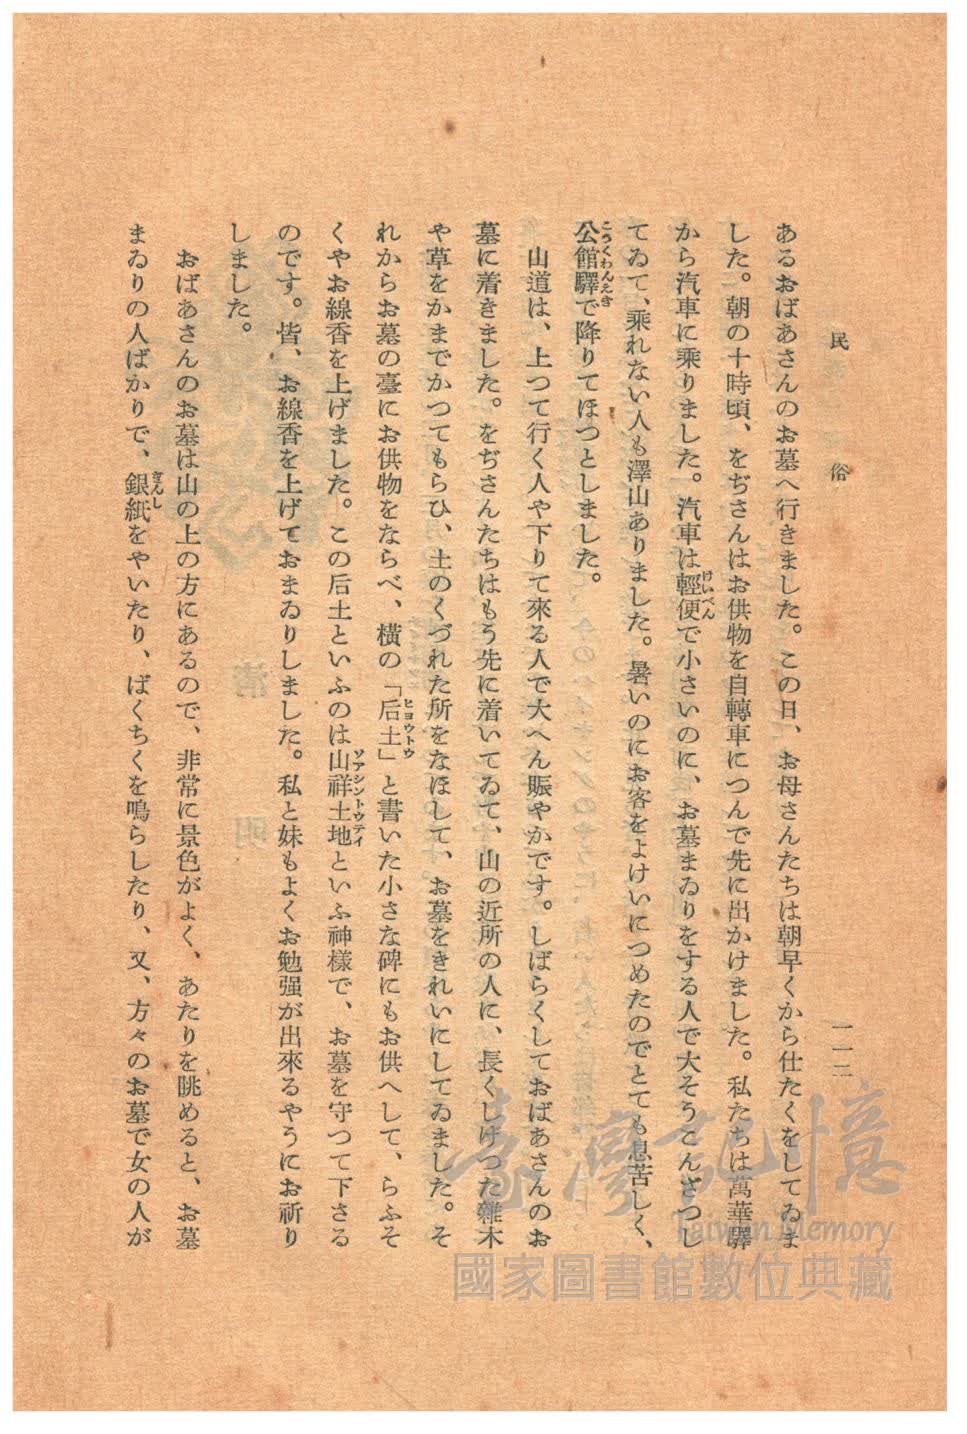 民俗
一一二
あるおばあさんのお墓へ行きました。この日、お母さんたちは朝早くから仕たくをしてゐま
した。朝の十時頃、をぢさんはお供物を自轉車につんで先に出かけました。私たちは萬華驛
から汽車に乘りました。汽車は輕便で小さいのに、お墓まゐりをする人で大そうこんざつし
てゐて、乘れない人も澤山ありました。暑いのにお客をよけいにつめたのでとても息苦しく、
公館驛で降りてほつとしました。
山道は、上つて行く人や下りて來る人で大へん賑やかです。しばらくしておばあさんのお
墓に着きました。をぢさんたちはもう先に着いてゐて、山の近所の人に、長くしげつた雜木
や草をかまでかつてもらひ、土のくづれた所をなほして、お墓をきれいにしてゐました。そ
れからお墓の臺にお供物をならべ、橫の「后土」と書いた小さな碑にもお供へして、らふそ
くやお線香を上げました。この后土といふのは山祥土地といふ神樣で、お墓を守つて下さる
のです。皆、お線香を上げておまゐりしました。私と妹もよくお勉强が出來るやうにお祈り
しました。
おばあさんのお墓は山の上の方にあるので、非常に景色がよく、あたりを眺めると、お墓
まゐりの人ばかりで、銀紙をやいたり、ばくちくを鳴らしたり、又、方々のお墓で女の人が
けいべん
こうくわんえき
ヒヨウトウ
ソアシントウテイ
ぎんし
臺灣記憶
Taiwan Memory
國家圖書館數位典藏